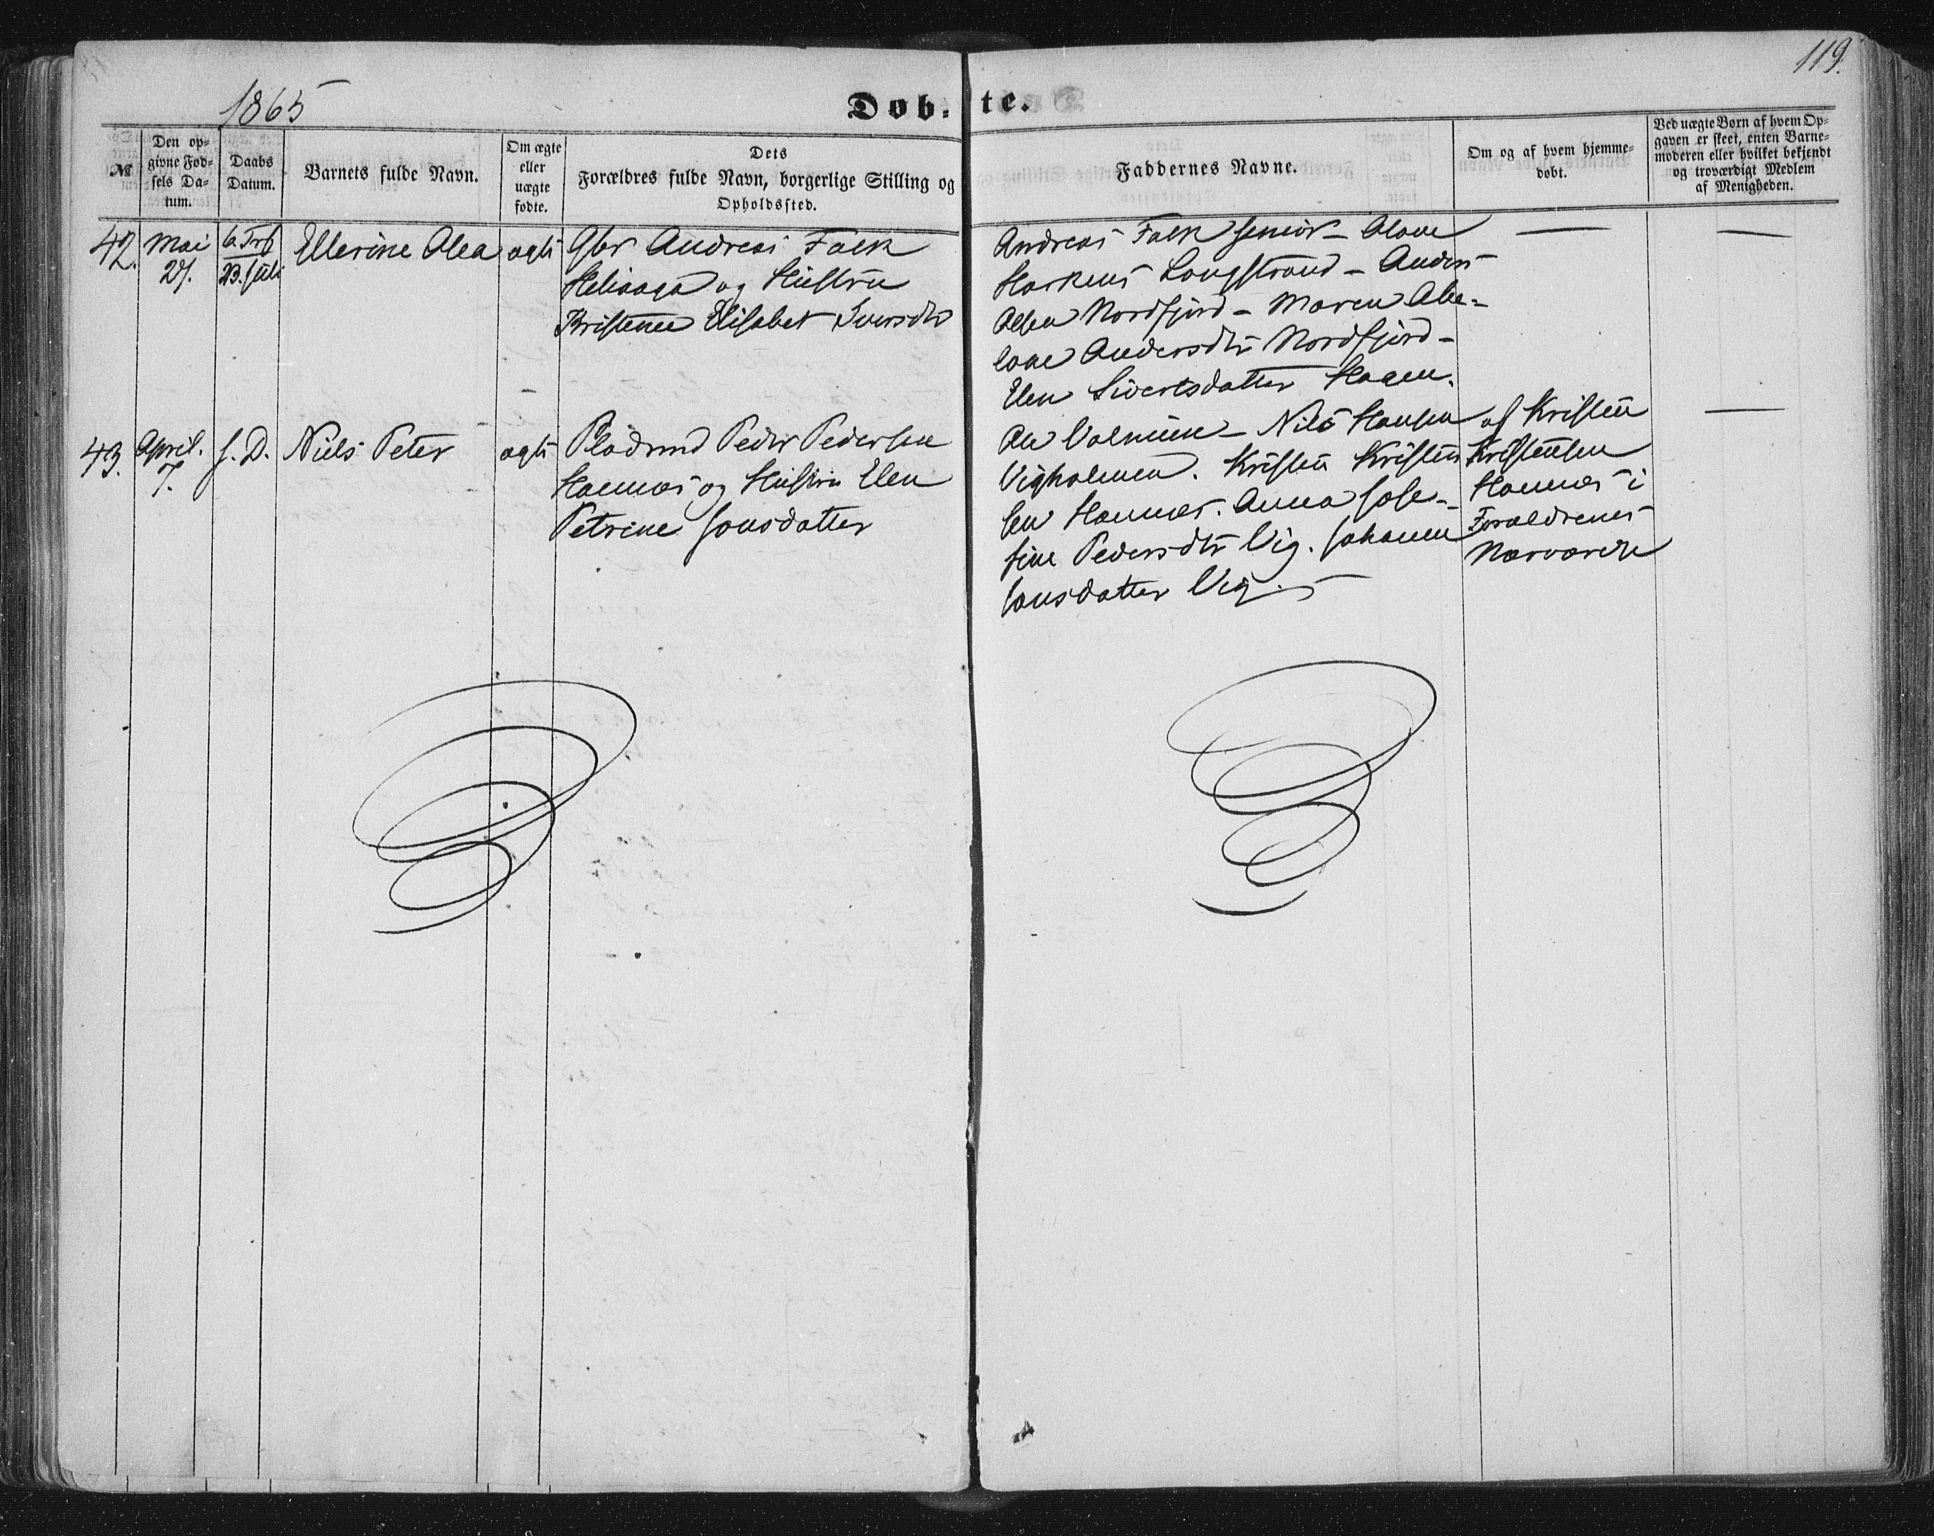 1865
Døb-te.
119.
№
Den op-
givne Fød-
sels Da-
tum.
Daabs
Datum.
Barnets fulde Navn.
Om ægte
eller
uægte
fødte.
Dets
Forældres fulde Navn, borgerlige Stilling og
Opholdssted.
Faddernes Navne.
Om og af hvem hjemme-
døbt.
Ved uægte Børn af hvem Op-
gaven er skeet, enten Barne-
moderen eller hvilket bekjendt
og troværdigt Medlem
af Menigheden.
42.
Mai
27.
6. Trf
23. Juli
Ellerine Olea
ægte
Gbr Andreas Falk
og Hustru
Elisabet Iversdtr
Andreas Falk senior - Olave
Langstrand - Anders
Olsen Nordfjord - Maren Abe-
lone Andersdtr Nordfjord -
Elen Sivertsdatter Hagen.
43.
April.
7.
s. D.
Niels Peter
ægte
Pedir Pedersen
Hamnes og Hustru Elen
Petrine Jonsdatter
Nils Hansen
Vigholmen. Kristen Kristen
sen Hamnes. Anna Jose-
fine Pedersdtr Vig. Johanna
Jonsdatter Vig.
af Kristen
Kristensen
Hamnes i
Forældrenes
Nærværelse